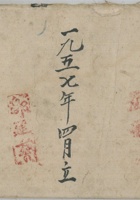 一九五七年四月立